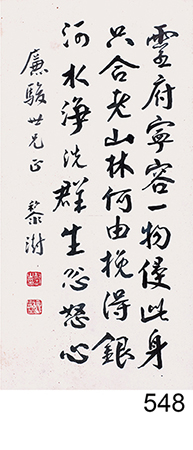 灵府宁容一物侵此身
只合老山林何由挽得银
河水净洗群生忿怒心
廉骏世兄正
黎澍
548